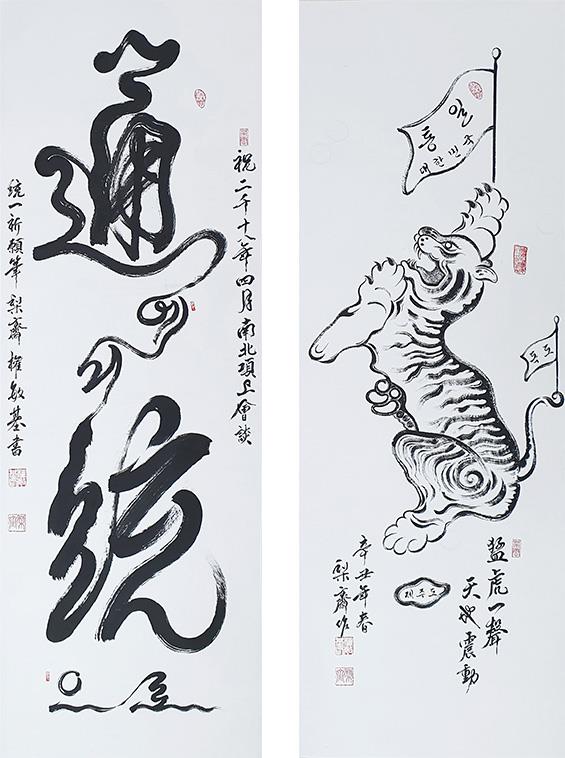 祝二千十八年四月南北頂上會談
通
統
統一祈願筆 梨齋 權敏基書
통일
대한민국
독도
猛虎一聲
天地震動
제주도
辛丑年春
梨齋作